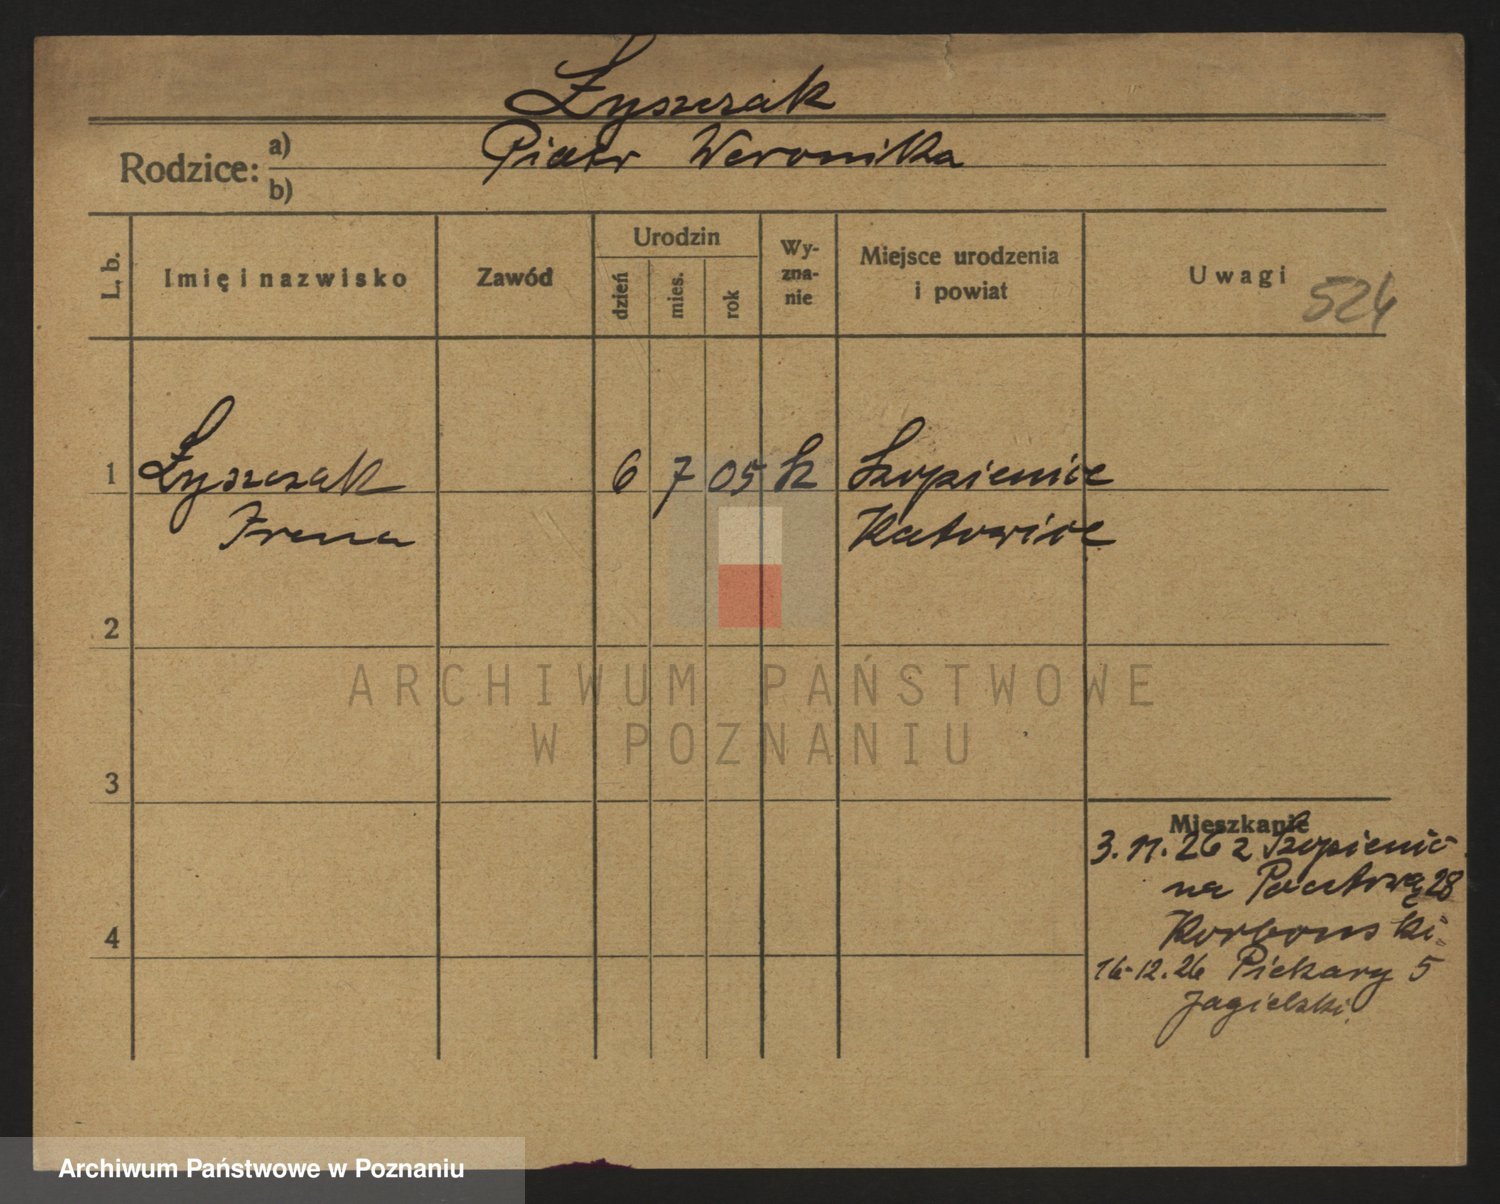 Łyszczak
Rodzice: a) Piotr Weronika
b)
L. b.
Imię i nazwisko
Zawód
Urodzin
dzień
mies.
rok
Wy-
zna-
nie
Miejsce urodzenia
i powiat
Uwagi
524
1 Łyszczak 6 7 05 k Szopienice
Irena Katowice
2
3
4
Mieszkanie
3.11.26 z Szopienic
na Pocztową 28
Korbonski
16.12.26 Piekary 5
Jagielski
ARCHIWUM PAŃSTWOWE
W POZNANIU
Archiwum Państwowe w Poznaniu